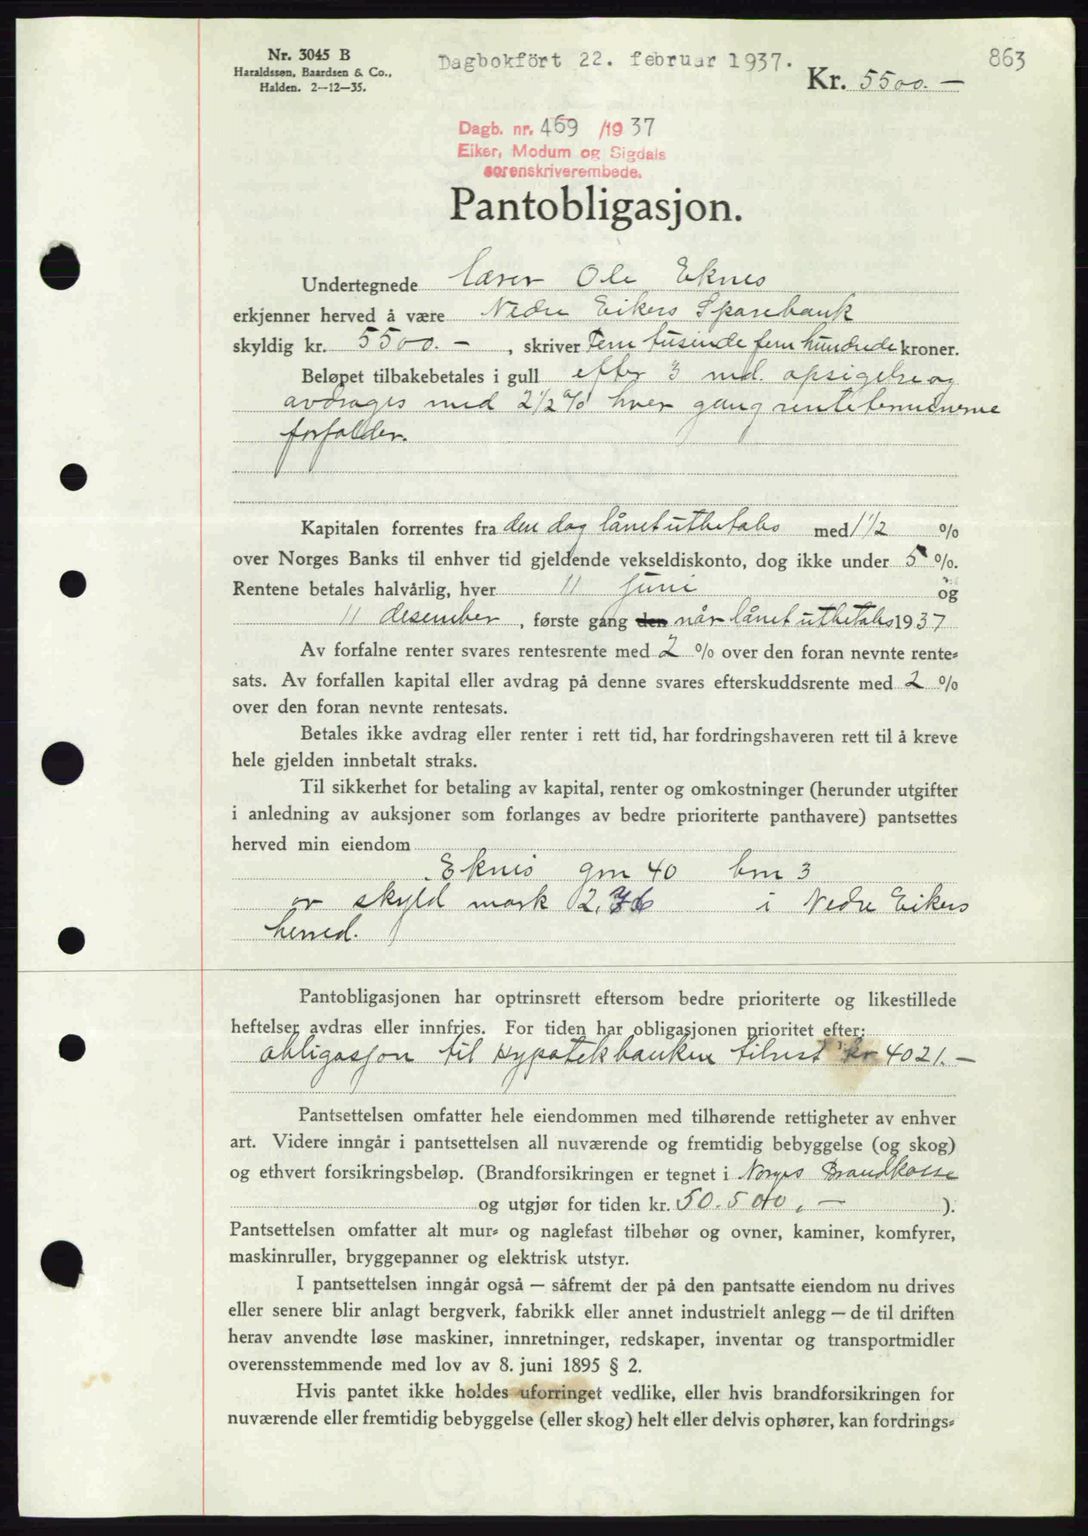 Nr. 3045 B
Haraldssøn, Baardsen & Co.,
Halden. 2—12—35.
Dagbokført 22. februar 1937.
863
Kr. 5500.—
Dagb. nr. 469 /1937
Eiker, Modum og Sigdals
sorenskriverembede.
Pantobligasjon.
Undertegnede lærer Ole Eknes
erkjenner herved å være Nedre Eikers Sparebank
skyldig kr. 5500.— , skriver Fem tusinde fem hundrede kroner.
Beløpet tilbakebetales i gull efter 3 md. opsigelse og
avdrages med 2 1/2 % hver gang renteterminerne
forfalder.
Kapitalen forrentes fra den dag lånet utbetales med 1 1/2 %
over Norges Banks til enhver tid gjeldende vekseldiskonto, dog ikke under 5 %.
Rentene betales halvårlig, hver 11 juni og
11 desember , første gang den når lånet utbetales 1937
Av forfalne renter svares rentesrente med 2 % over den foran nevnte rente-
sats. Av forfallen kapital eller avdrag på denne svares efterskuddsrente med 2 %
over den foran nevnte rentesats.
Betales ikke avdrag eller renter i rett tid, har fordringshaveren rett til å kreve
hele gjelden innbetalt straks.
Til sikkerhet for betaling av kapital, renter og omkostninger (herunder utgifter
i anledning av auksjoner som forlanges av bedre prioriterte panthavere) pantsettes
herved min eiendom
Eknes gm 40 bm 3
av skyld mark 2,36 i Nedre Eikers
herred.
Pantobligasjonen har optrinsrett eftersom bedre prioriterte og likestillede
heftelser avdras eller innfries. For tiden har obligasjonen prioritet efter:
obligasjon til Hypotekbanken tilrest kr 4021.—
Pantsettelsen omfatter hele eiendommen med tilhørende rettigheter av enhver
art. Videre inngår i pantsettelsen all nuværende og fremtidig bebyggelse (og skog)
og ethvert forsikringsbeløp. (Brandforsikringen er tegnet i Norges Brandkasse
og utgjør for tiden kr. 50.500,— ).
Pantsettelsen omfatter alt mur- og naglefast tilbehør og ovner, kaminer, komfyrer,
maskinruller, bryggepanner og elektrisk utstyr.
I pantsettelsen inngår også — såfremt der på den pantsatte eiendom nu drives
eller senere blir anlagt bergverk, fabrikk eller annet industrielt anlegg — de til driften
herav anvendte løse maskiner, innretninger, redskaper, inventar og transportmidler
overensstemmende med lov av 8. juni 1895 § 2.
Hvis pantet ikke holdes uforringet vedlike, eller hvis brandforsikringen for
nuværende eller fremtidig bebyggelse (eller skog) helt eller delvis ophører, kan fordrings-